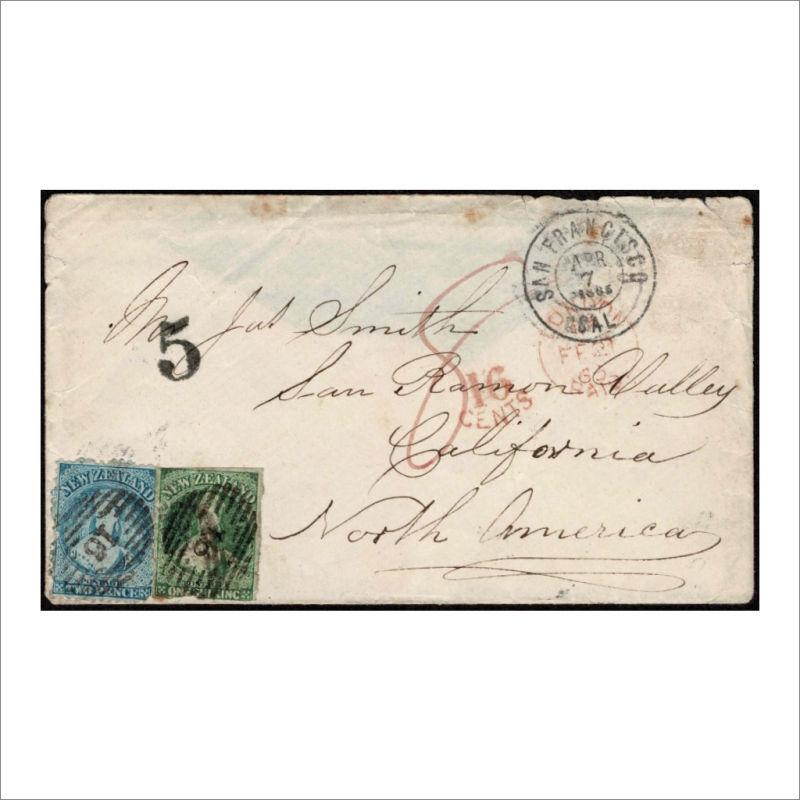 SAN FRANCISCO
APR
7
CAL
5
Mr Jas Smith
San Ramon Valley
California
North America
8
16
CENTS
PAID
NEW ZEALAND
POSTAGE
TWO PENCE
NEW ZEALAND
16